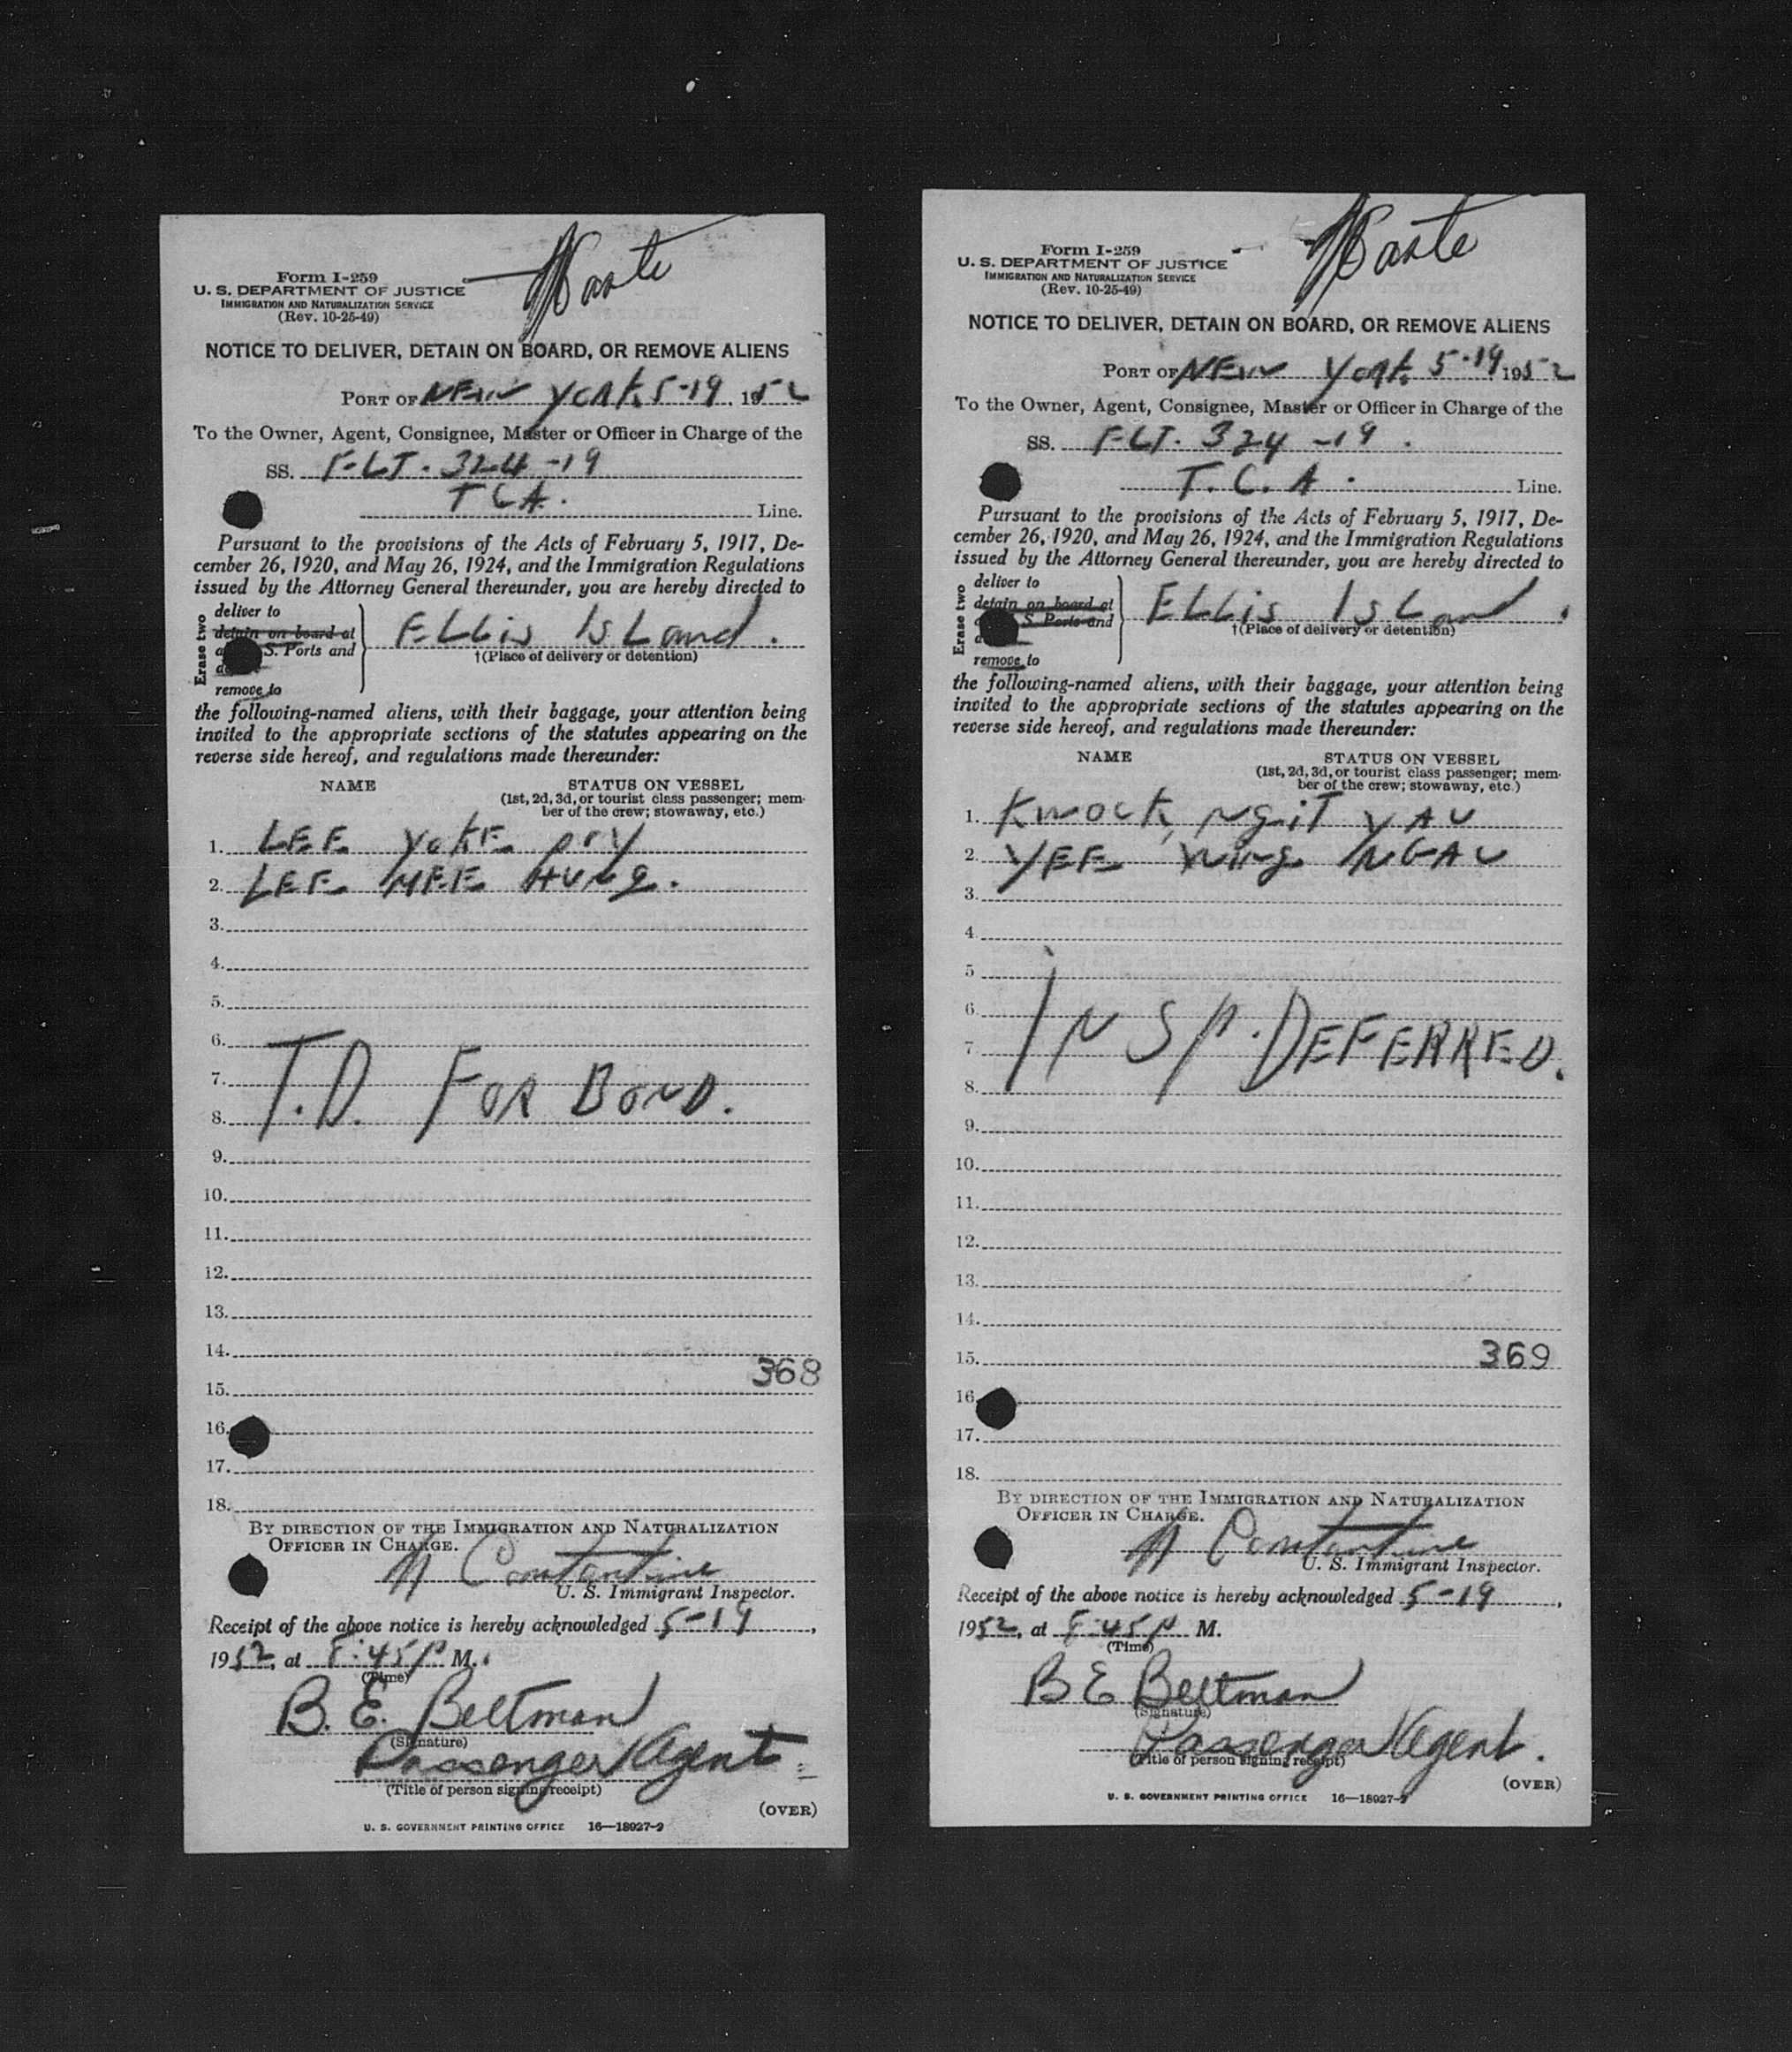 Form I-259
U. S. DEPARTMENT OF JUSTICE
IMMIGRATION AND NATURALIZATION SERVICE
(Rev. 10-25-49)
NOTICE TO DELIVER, DETAIN ON BOARD, OR REMOVE ALIENS
PORT OF NEW YORK, 5-19, 1952
To the Owner, Agent, Consignee, Master or Officer in Charge of the
SS. FLT. 324-19
TCA. Line.
Pursuant to the provisions of the Acts of February 5, 1917, De-
cember 26, 1920, and May 26, 1924, and the Immigration Regulations
issued by the Attorney General thereunder, you are hereby directed to
Erase two
deliver to
detain on board at
S. Ports and
remove to
ELLis IsLand.
†(Place of delivery or detention)
the following-named aliens, with their baggage, your attention being
invited to the appropriate sections of the statutes appearing on the
reverse side hereof, and regulations made thereunder:
NAME STATUS ON VESSEL
(1st, 2d, 3d, or tourist class passenger; mem-
ber of the crew; stowaway, etc.)
1. LEE YOKE POY
2. LEE MEE HUNG.
3.
4.
5.
6.
7.
8.
T.D. FOR BOND.
9.
10.
11.
12.
13.
14.
368
15.
16.
17.
18.
BY DIRECTION OF THE IMMIGRATION AND NATURALIZATION
OFFICER IN CHARGE.
N Constantine
U. S. Immigrant Inspector.
Receipt of the above notice is hereby acknowledged 5-19,
1952, at 5:45 P M.
(Time)
B. E. Beltman
(Signature)
Passenger Agent
(Title of person signing receipt)
(OVER)
U. S. GOVERNMENT PRINTING OFFICE 16—18927-2
Form I-259
U. S. DEPARTMENT OF JUSTICE
IMMIGRATION AND NATURALIZATION SERVICE
(Rev. 10-25-49)
NOTICE TO DELIVER, DETAIN ON BOARD, OR REMOVE ALIENS
PORT OF NEW YORK, 5-19, 1952
To the Owner, Agent, Consignee, Master or Officer in Charge of the
SS. FLT. 324-19.
T.C.A. Line.
Pursuant to the provisions of the Acts of February 5, 1917, De-
cember 26, 1920, and May 26, 1924, and the Immigration Regulations
issued by the Attorney General thereunder, you are hereby directed to
Erase two
deliver to
detain on board at
S. Ports and
remove to
ELLis IsLand.
†(Place of delivery or detention)
the following-named aliens, with their baggage, your attention being
invited to the appropriate sections of the statutes appearing on the
reverse side hereof, and regulations made thereunder:
NAME STATUS ON VESSEL
(1st, 2d, 3d, or tourist class passenger; mem-
ber of the crew; stowaway, etc.)
1. KWOCK, NgiT YAU
2. YEE Wing NGAU
3.
4.
5.
6.
7.
8.
INSP. DEFERRED.
9.
10.
11.
12.
13.
14.
15. 369
16.
17.
18.
BY DIRECTION OF THE IMMIGRATION AND NATURALIZATION
OFFICER IN CHARGE.
N Constantine
U. S. Immigrant Inspector.
Receipt of the above notice is hereby acknowledged 5-19,
1952, at 5:45 P M.
(Time)
B E Beltman
(Signature)
Passenger Agent.
(Title of person signing receipt)
(OVER)
U. S. GOVERNMENT PRINTING OFFICE 16—18927-2